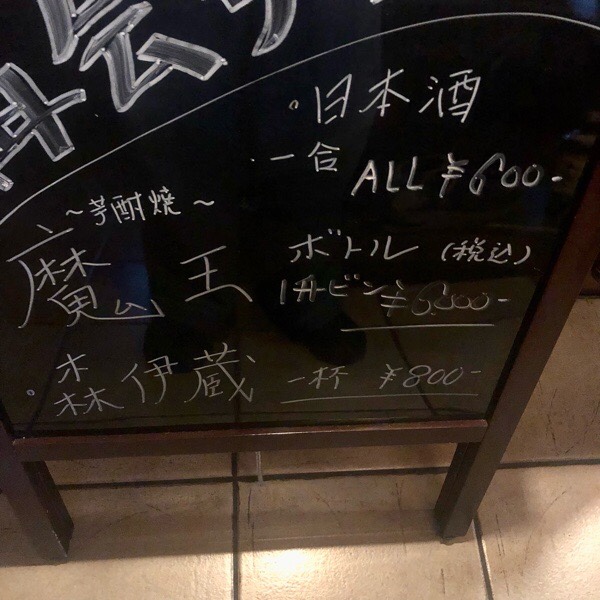 。日本酒
・一合 ALL ¥600-
〜芋酎焼〜
魔王 ボトル (税込)
1升ビン ¥6,000-
。森伊蔵 一杯 ¥800-